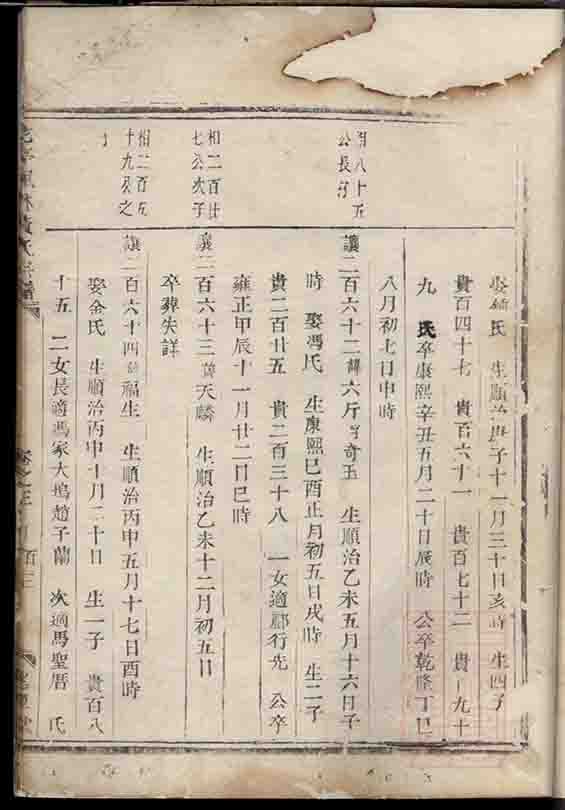 氏　生順治庚子十一月三十日亥時　生四子
貴百四十七　貴百六十一　貴百七十二　貴　九十
九　氏卒康熙辛丑五月二十日辰時　公卒乾隆丁巳
八月初七日申時
八十五
公長子
讓二百六十二諱六斤　奇玉　生順治乙未五月十六日子
時　娶馮氏　生康熙己酉正月初五日戌時　生二子
貴二百廿五　貴二百三十八　一女適　行先　公卒
雍正甲辰十一月廿二日巳時
相二百廿
七公次子
讓二百六十三諱天麟　生順治乙未十二月初五日
卒葬失詳
相二百五
十九公之
讓二百六十四諱福生　生順治丙申五月十七日酉時
娶金氏　生順治丙申十月二十日　生一子　貴百八
十五　二女長適馮家大塢趙子蘭　次適馬聖曆　氏